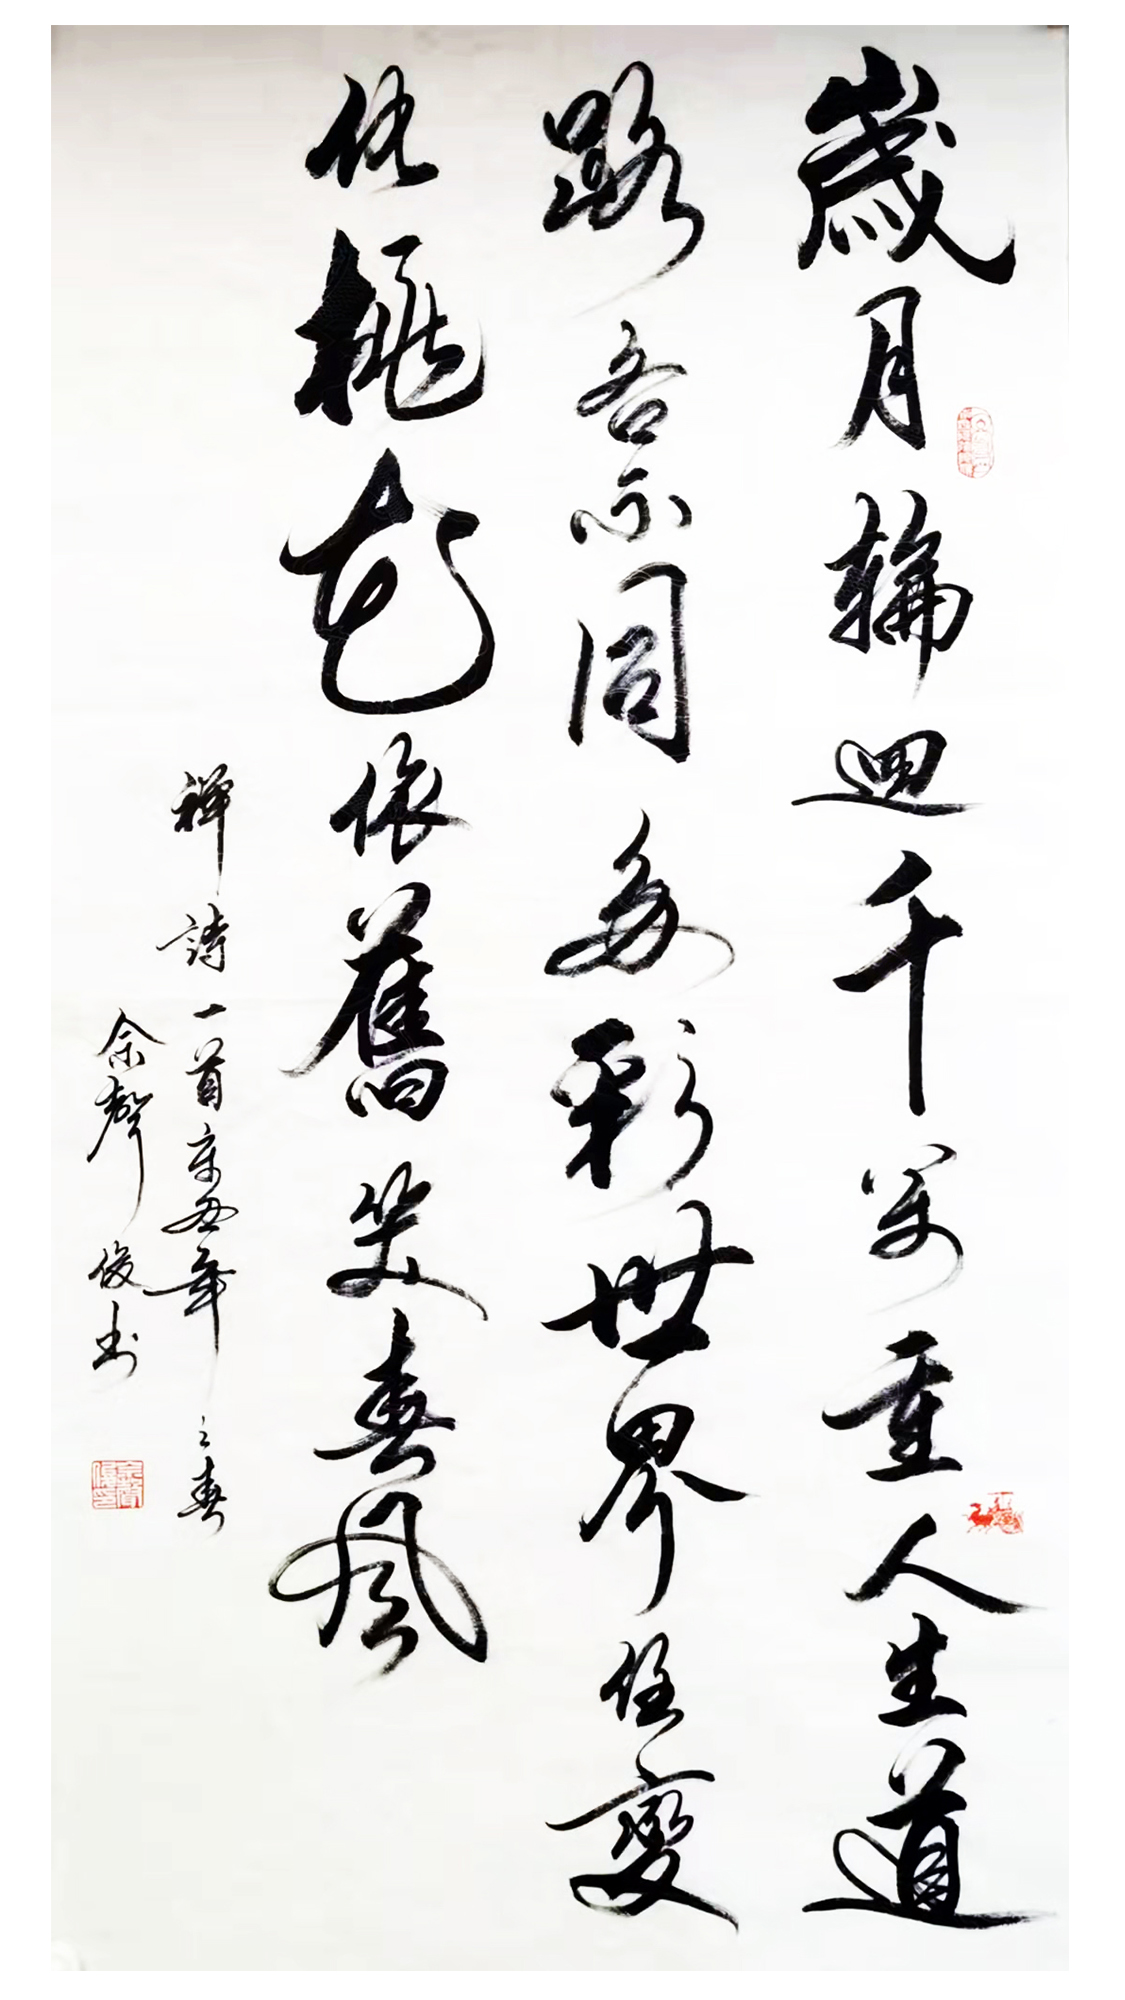 歲月輪迴千萬重人生道
路各不同多彩世界任變
化桃花依舊笑春風
禪詩一首辛丑年之春
余聲俊书